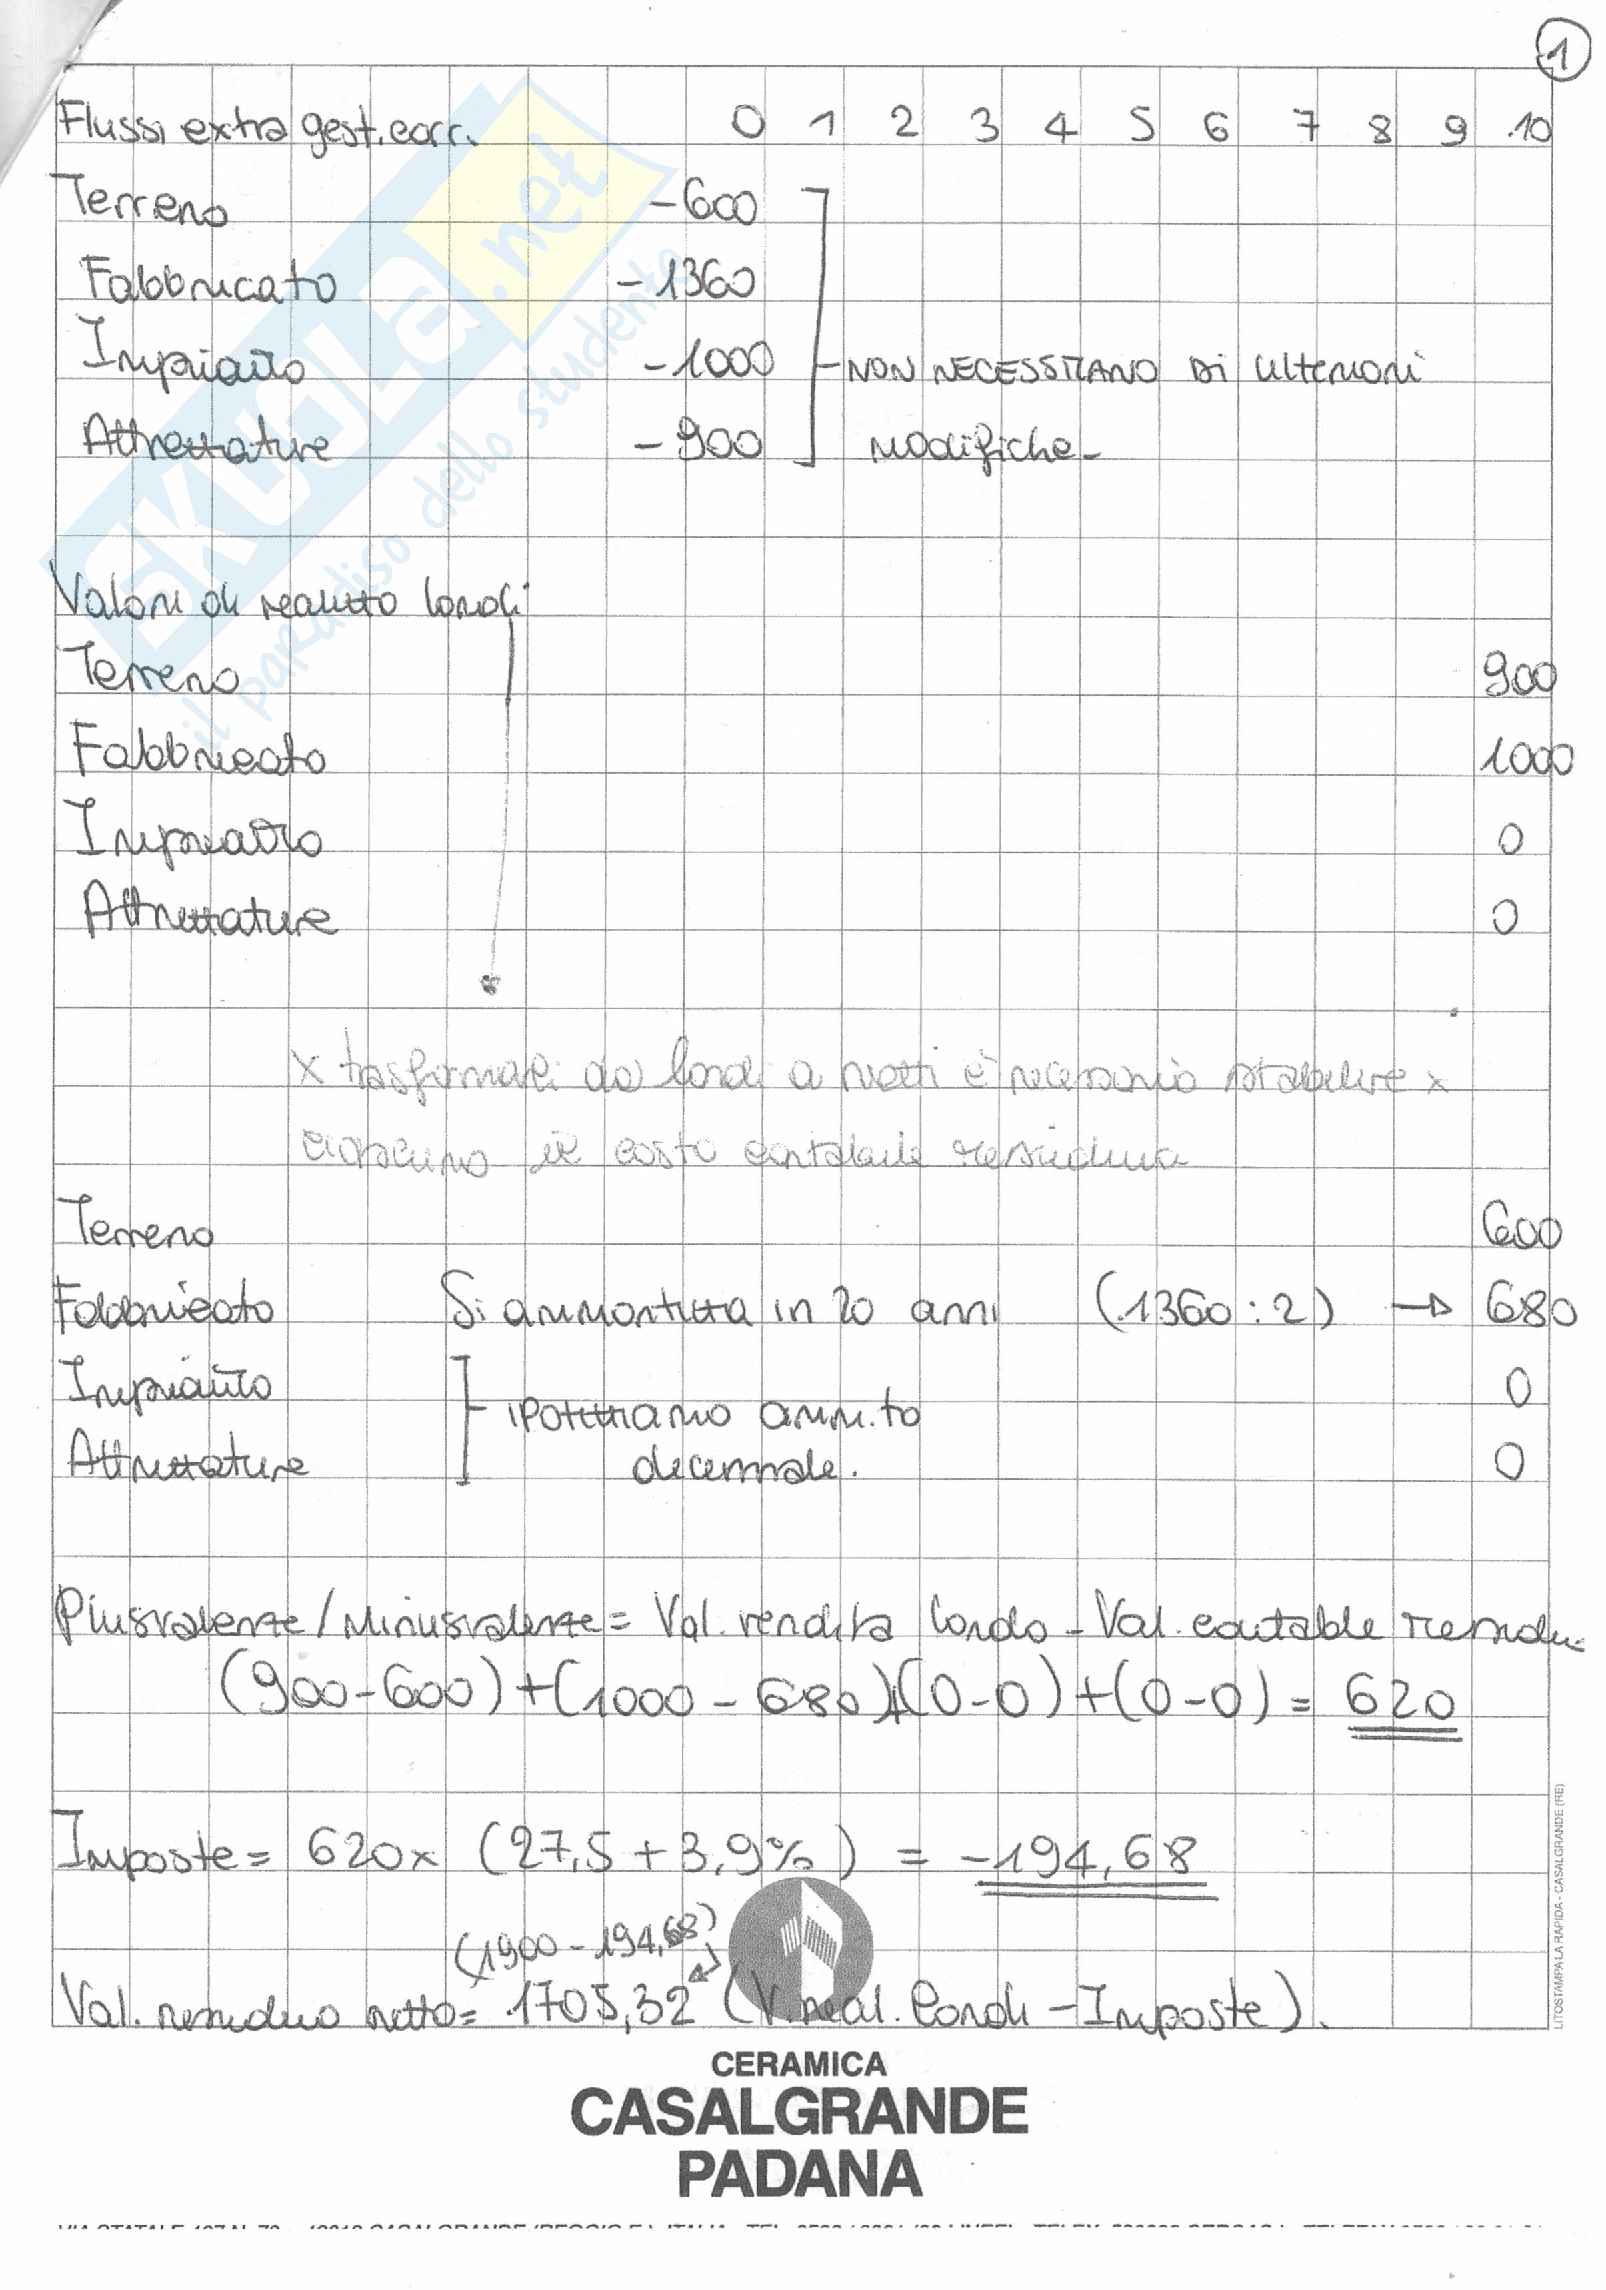 1
Flussi extra gest. corr. 0 1 2 3 4 5 6 7 8 9 10
Terreno -600
Fabbricato -1360
Impianto -1000 NON NECESSITANO DI ULTERIORI
Attrezzature -900 MODIFICHE-
Valori di realizzo lordi
Terreno 900
Fabbricato 1000
Impianto 0
Attrezzature 0
x trasformarli da lordi a netti è necessario stabilire x
ciascuno il costo contabile residuo
Terreno 600
Fabbricato Si ammortizza in 20 anni (1360:2) → 680
Impianto 0
ipotizziamo amm.to
Attrezzature decennale. 0
Plusvalenze/Minusvalenze = Val. vendita lordo - Val. contabile residuo
(900-600)+(1000-680)+(0-0)+(0-0) = 620
Imposte = 620x (27,5 + 3,9%) = -194,68
(1900-194,68)
Val. residuo netto = 1705,32 (V. real. lordi - Imposte).
CERAMICA
CASALGRANDE
PADANA
LITOSTAMPA LA RAPIDA - CASALGRANDE (RE)
SKUOLA.net
il paradiso dello studente